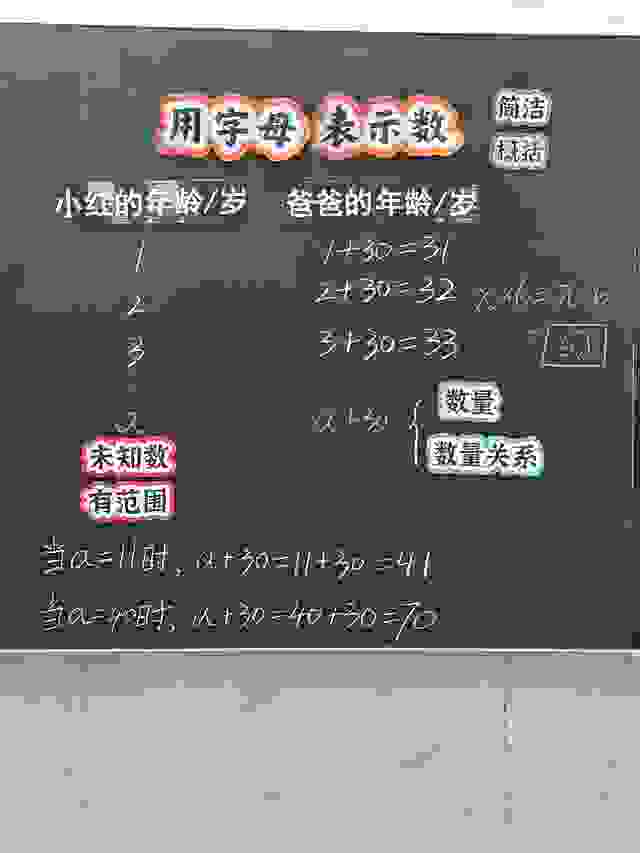 用字母表示数
简洁
概括
小红的年龄/岁 爸爸的年龄/岁
1 1+30=31
2 2+30=32
3 3+30=33
a a+30
数量
数量关系
未知数
有范围
当a=11时，a+30=11+30=41
当a=40时，a+30=40+30=70